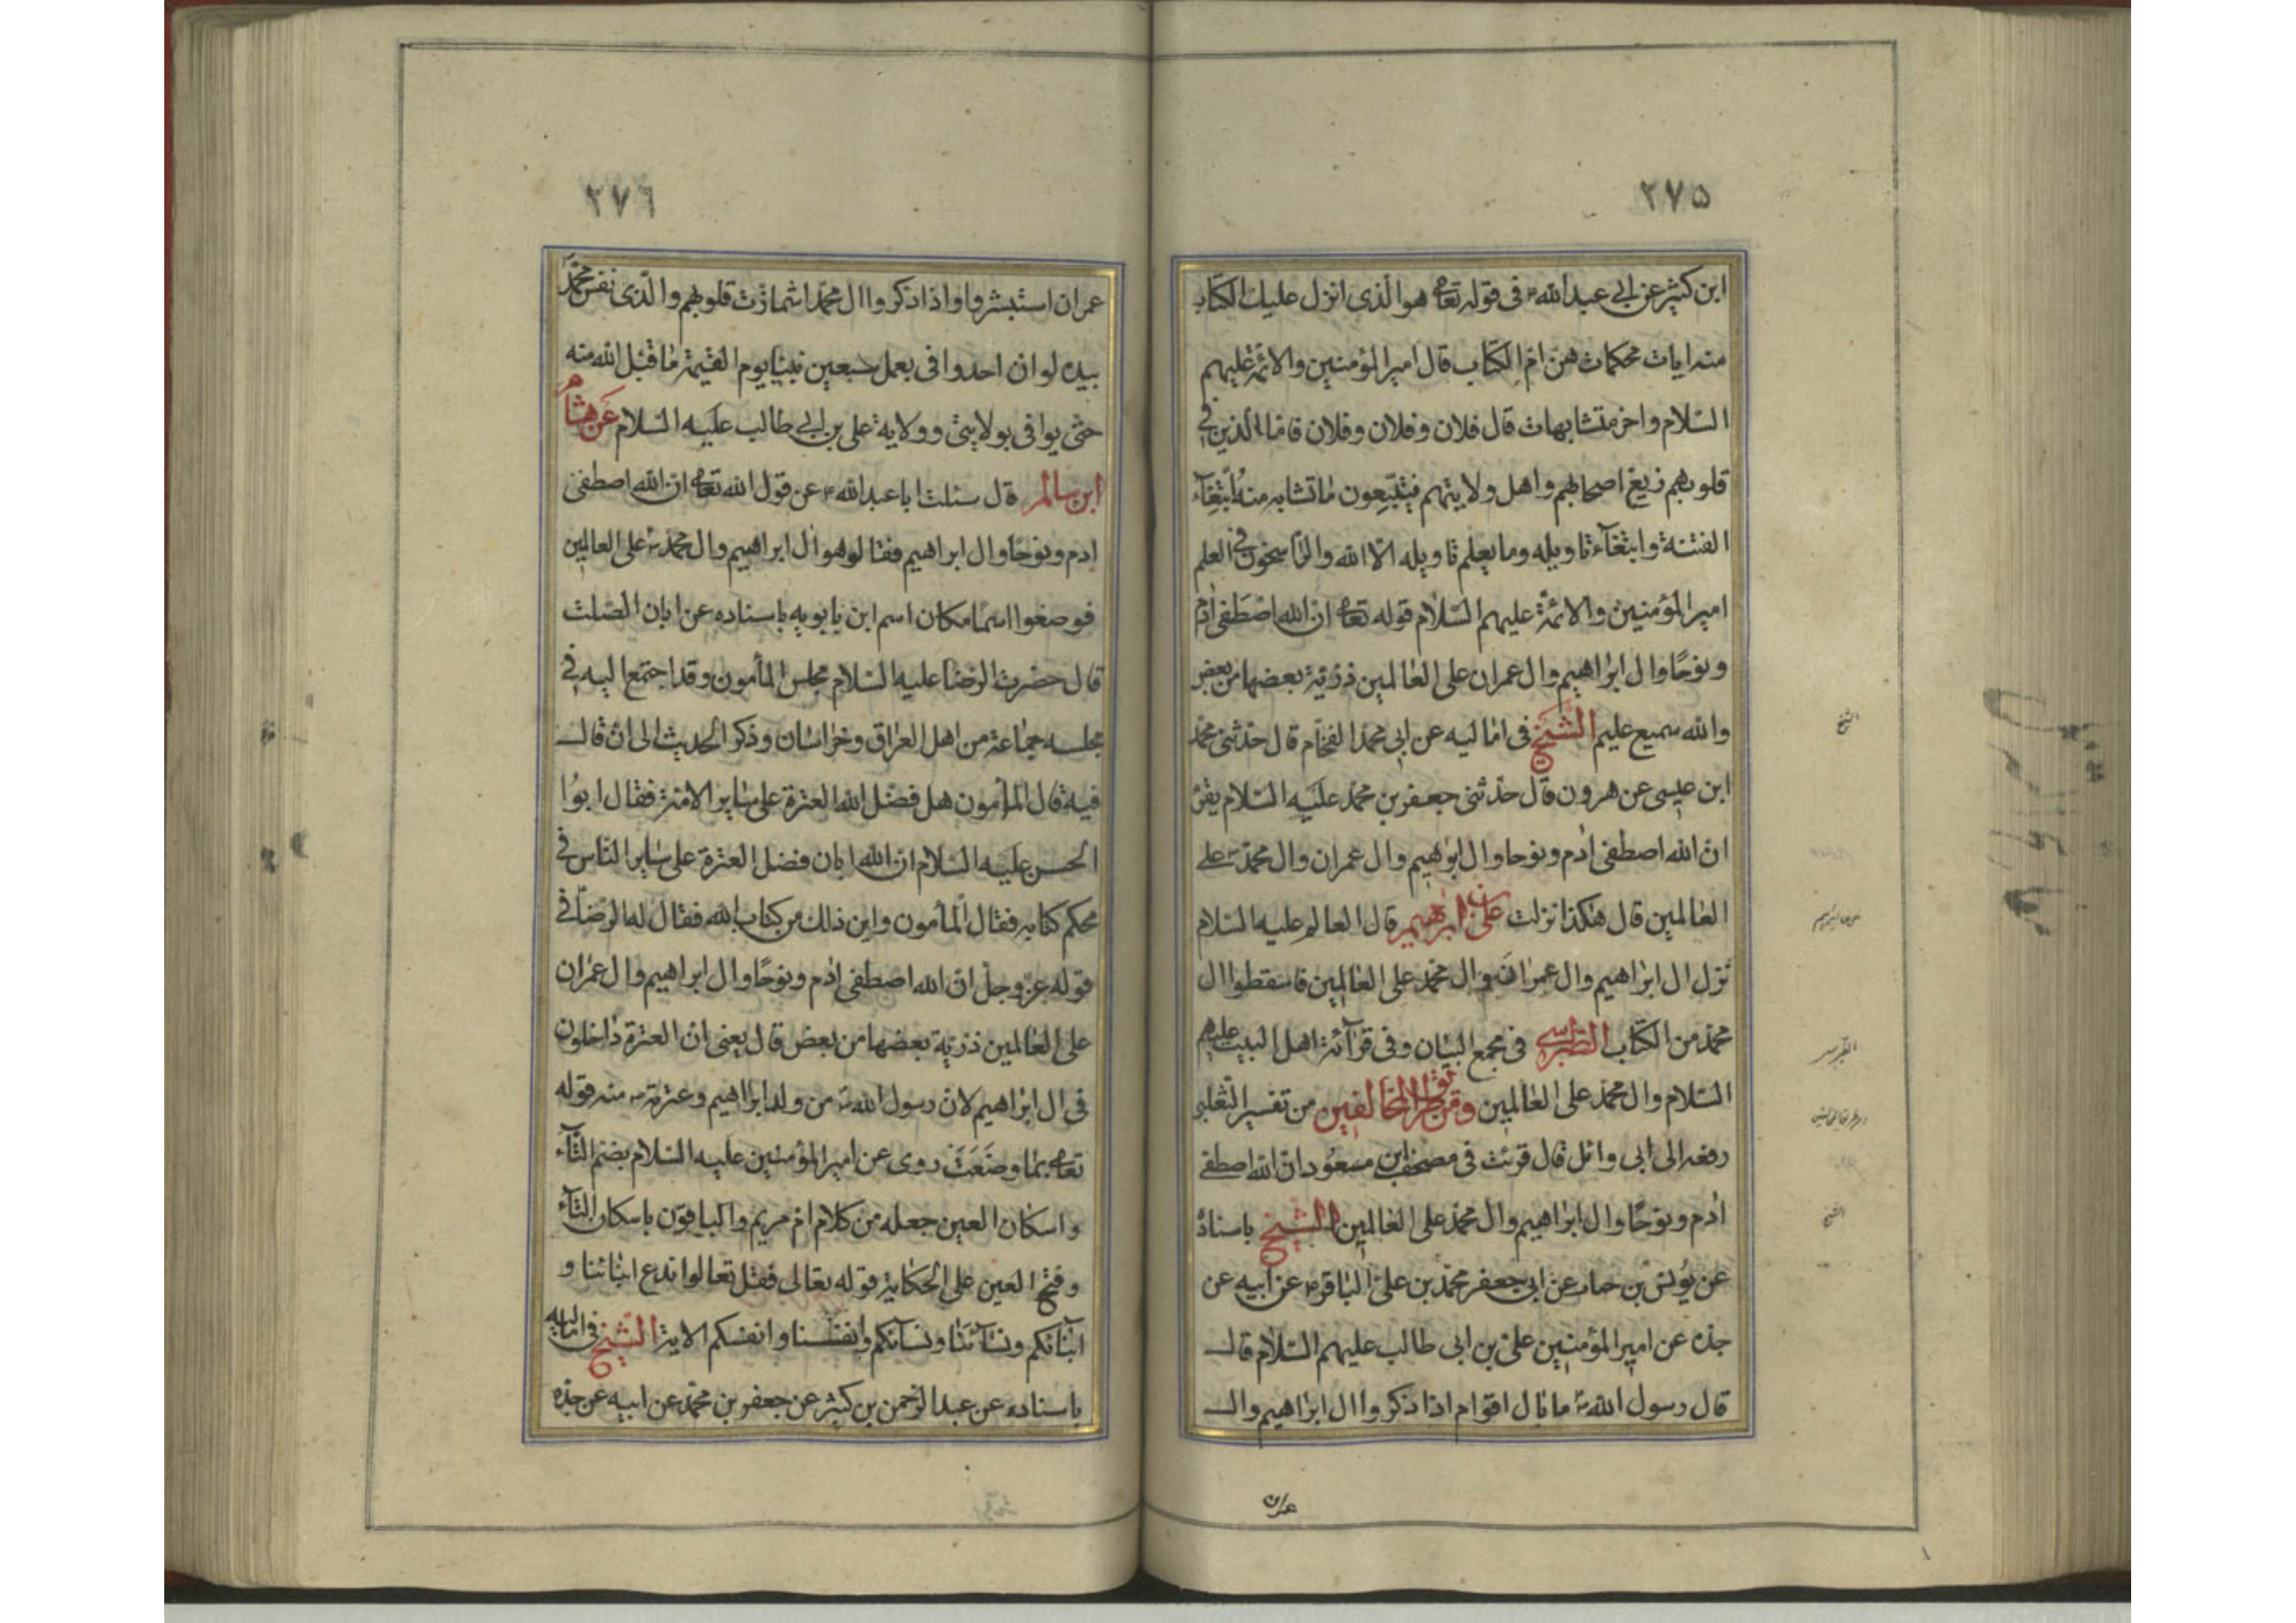 ٢٧٥
ابن كثير عن ابي عبدالله ع في قوله تعا هو الذي انزل عليك الكتاب
منه ايات محكمات هن ام الكتاب قال امير المؤمنين والائمة عليهم
السلام واخر متشابهات قال فلان وفلان وفلان فاما الذين في
قلوبهم زيغ اصحابهم واهل ولايتهم فيتبعون ما تشابه منه ابتغآء
الفتنة وابتغآء تاويله وما يعلم تاويله الا الله والراسخون في العلم
امير المؤمنين والائمة عليهم السلام قوله تعا ان الله اصطفى ادم
ونوحا وال ابراهيم وال عمران على العالمين ذرية بعضها من بعض
والله سميع عليم الشيخ في اماليه عن ابي محمد الفحام قال حدثني محمد
ابن عيسى عن هرون قال حدثني جعفر بن محمد عليه السلام يقرء
ان الله اصطفى ادم ونوحا وال ابرهيم وال عمران وال محمد ص على
العالمين قال هكذا نزلت علي بن ابرهيم قال العالم عليه السلام
نزل ال ابراهيم وال عمران وال محمد على العالمين فاسقطوا ال
محمد من الكتاب الطبرسي في مجمع البيان وفي قرآئة اهل البيت عليهم
السلام وال محمد على العالمين ومن طريق المخالفين من تفسير الثعلبي
رفعه الى ابي وائل قال قرئت في مصحف ابن مسعود ان الله اصطفى
ادم ونوحا وال ابراهيم وال محمد على العالمين الشيخ باسناده
عن يونس بن حباب عن ابي جعفر محمد بن علي الباقر ع عن ابيه عن
جده عن امير المؤمنين علي بن ابي طالب عليهم السلام قال
قال رسول الله ص ما بال اقوام اذا ذكروا ال ابراهيم وال
عمران
الشيخ
علي بن ابراهيم
الطبرسي
الشيخ
٢٧٦
عمران استبشروا واذا ذكروا ال محمد اشمازت قلوبهم والذي نفس محمد
بيده لو ان احدا وافى بعمل سبعين نبيا يوم القيمة ما قبل الله منه
حتى يوافي بولايتي وولاية علي بن ابي طالب عليه السلام عن هشام
ابن سالم قال سئلت ابا عبدالله ع عن قول الله تعا ان الله اصطفى
ادم ونوحا وال ابراهيم فقال هو ال ابراهيم وال محمد ص على العالمين
فوضعوا اسما مكان اسم ابن بابويه باسناده عن ابان الصلت
قال حضرت الرضا عليه السلام مجلس المأمون وقد اجتمع اليه في
مجلسه جماعة من اهل العراق وخراسان وذكر الحديث الى ان قال
فيه قال المأمون هل فضل الله العترة على ساير الامة فقال ابوا
الحسن عليه السلام ان الله ابان فضل العترة على ساير الناس في
محكم كتابه فقال المأمون واين ذلك من كتاب الله فقال له الرضا في
قوله عز وجل ان الله اصطفى ادم ونوحا وال ابراهيم وال عمران
على العالمين ذرية بعضها من بعض قال يعني ان العترة داخلون
في ال ابراهيم لان رسول الله ص من ولد ابراهيم وعترته منه قوله
تعا بما وضعت روى عن امير المؤمنين عليه السلام بضم التآء
واسكان العين جعله من كلام ام مريم والباقون باسكان التآء
وفتح العين على الحكاية قوله تعالى فقل تعالوا ندع ابنائنا و
ابنائكم ونسآئنا ونسآئكم وانفسنا وانفسكم الاية الشيخ في اماليه
باسناده عن عبدالرحمن بن كثير عن جعفر بن محمد عن ابيه عن جده